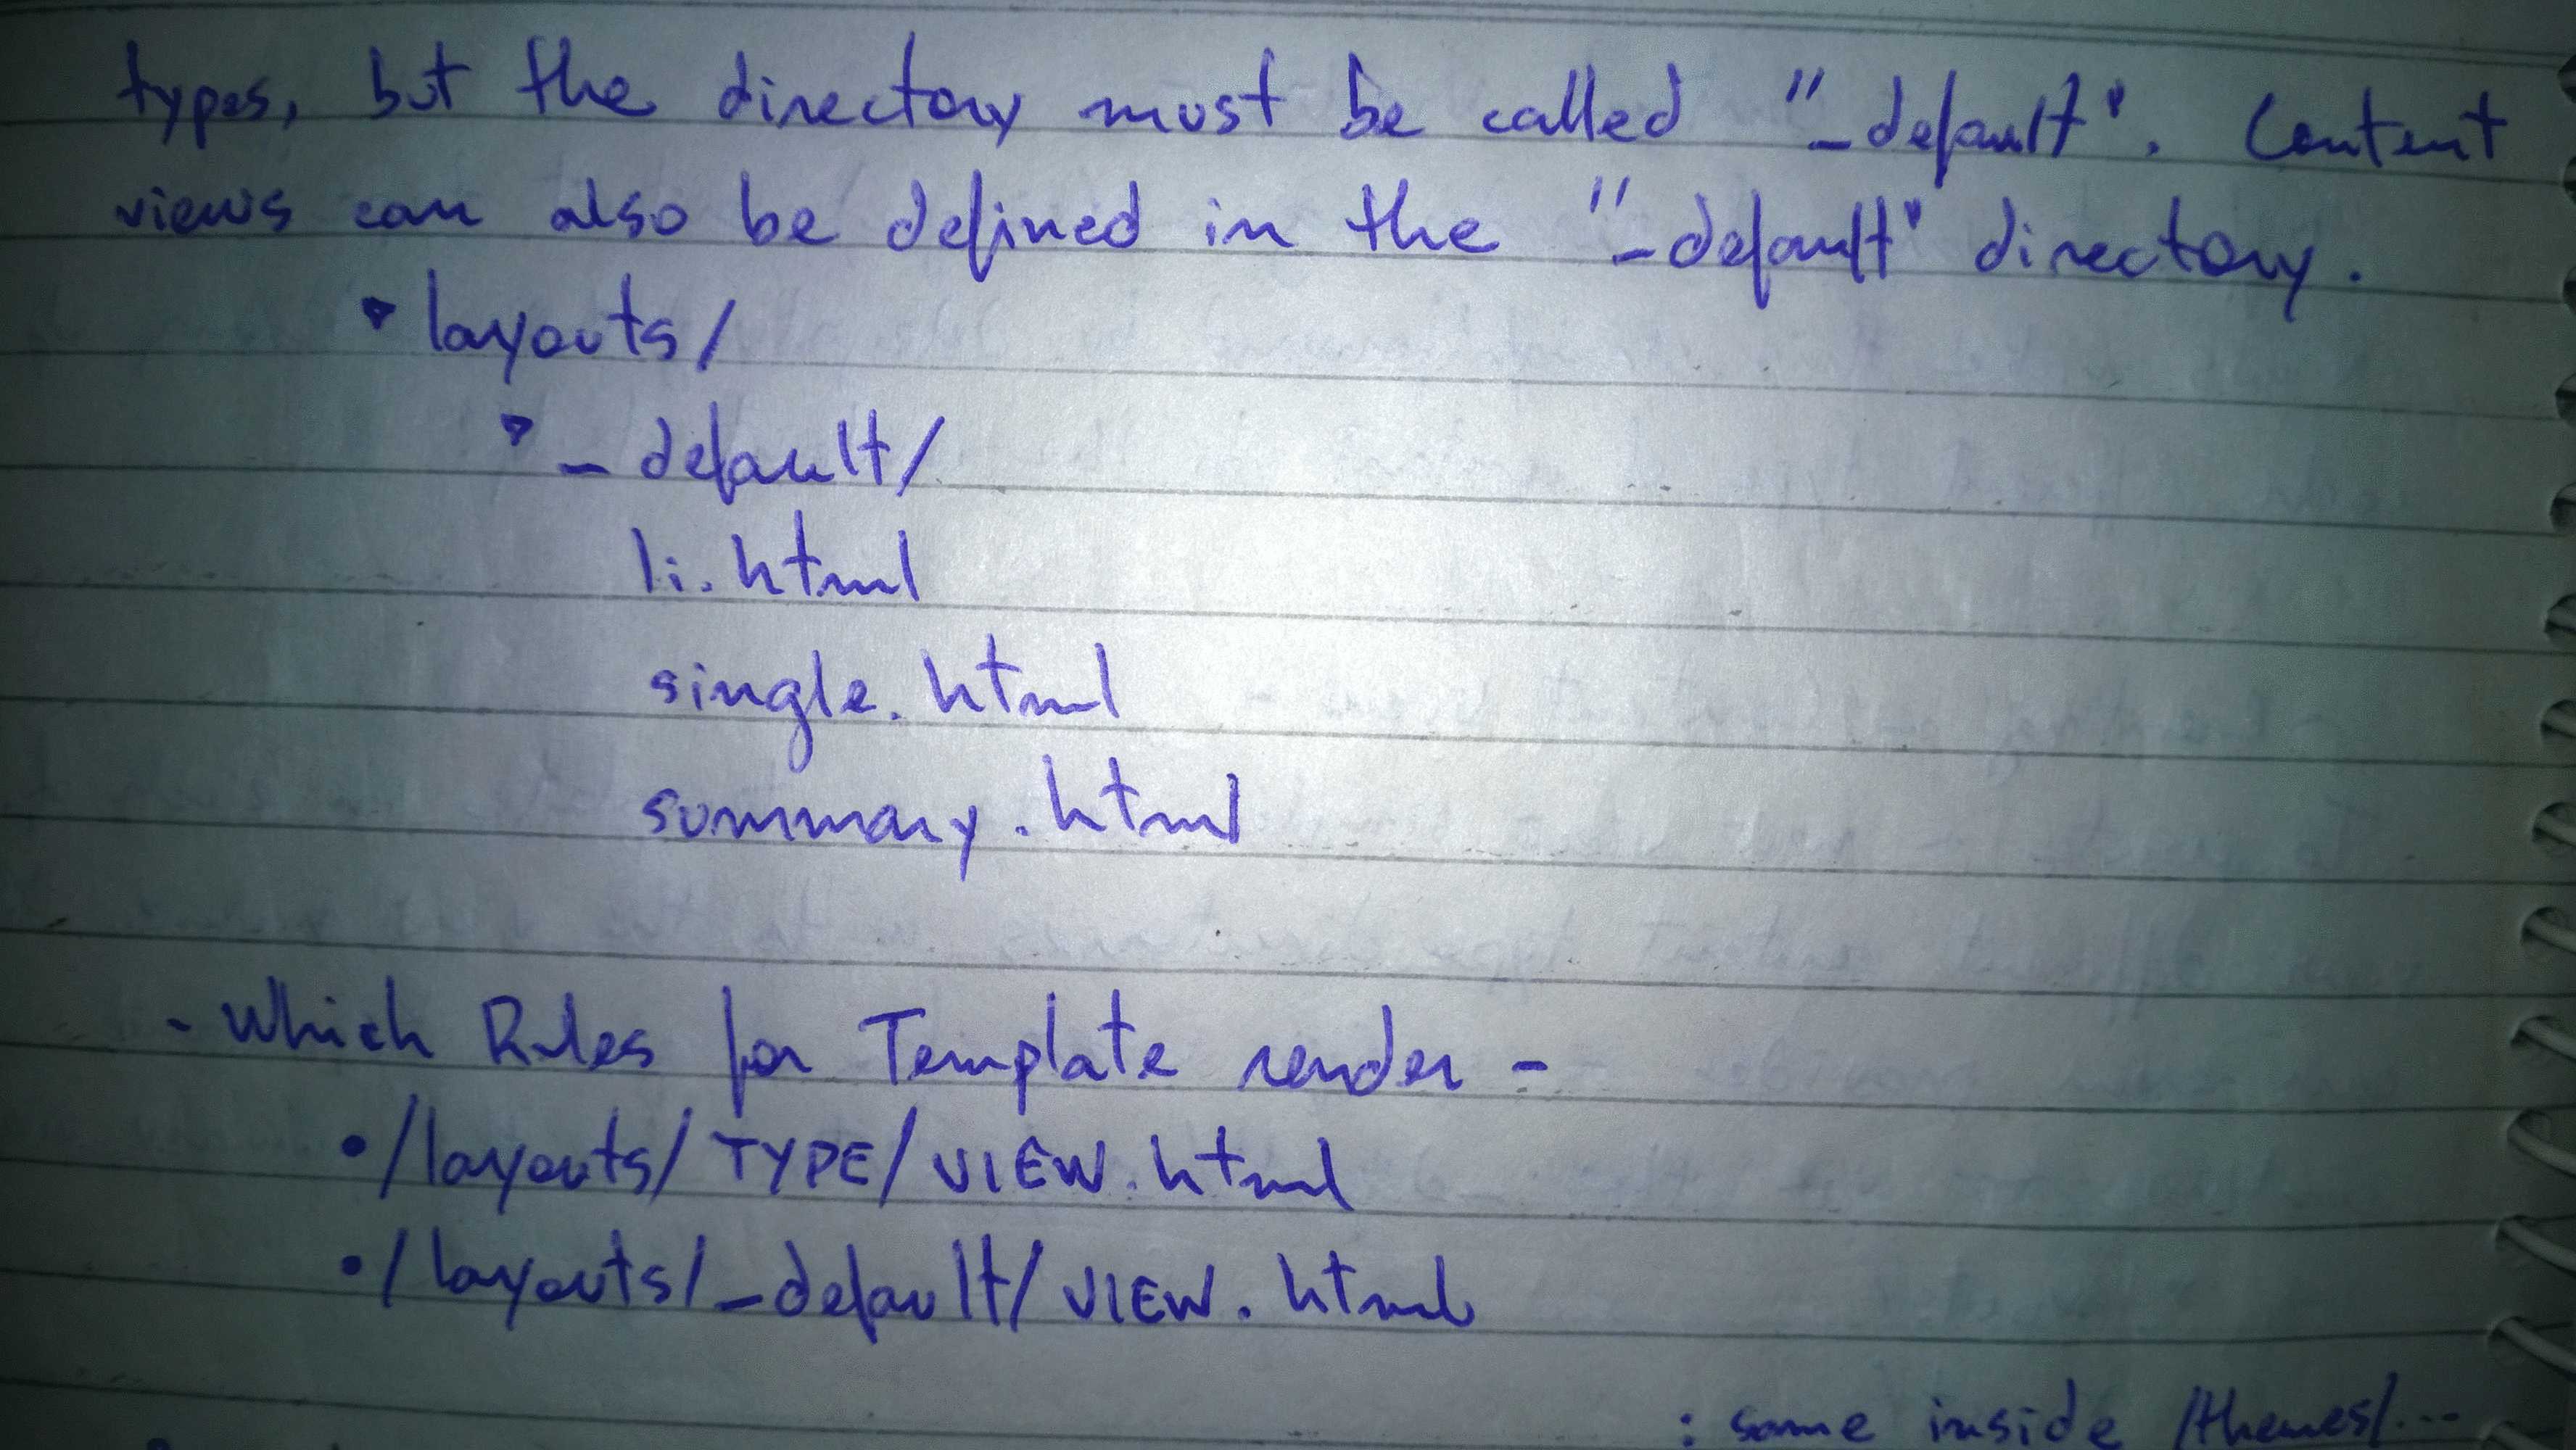 types, but the directory must be called "_default". Content
views can also be defined in the "_default" directory.
▾ layouts/
▾ _default/
li.html
single.html
summary.html
- Which Rules for Template render -
• /layouts/TYPE/VIEW.html
• /layouts/_default/VIEW.html
: same inside /themes/...